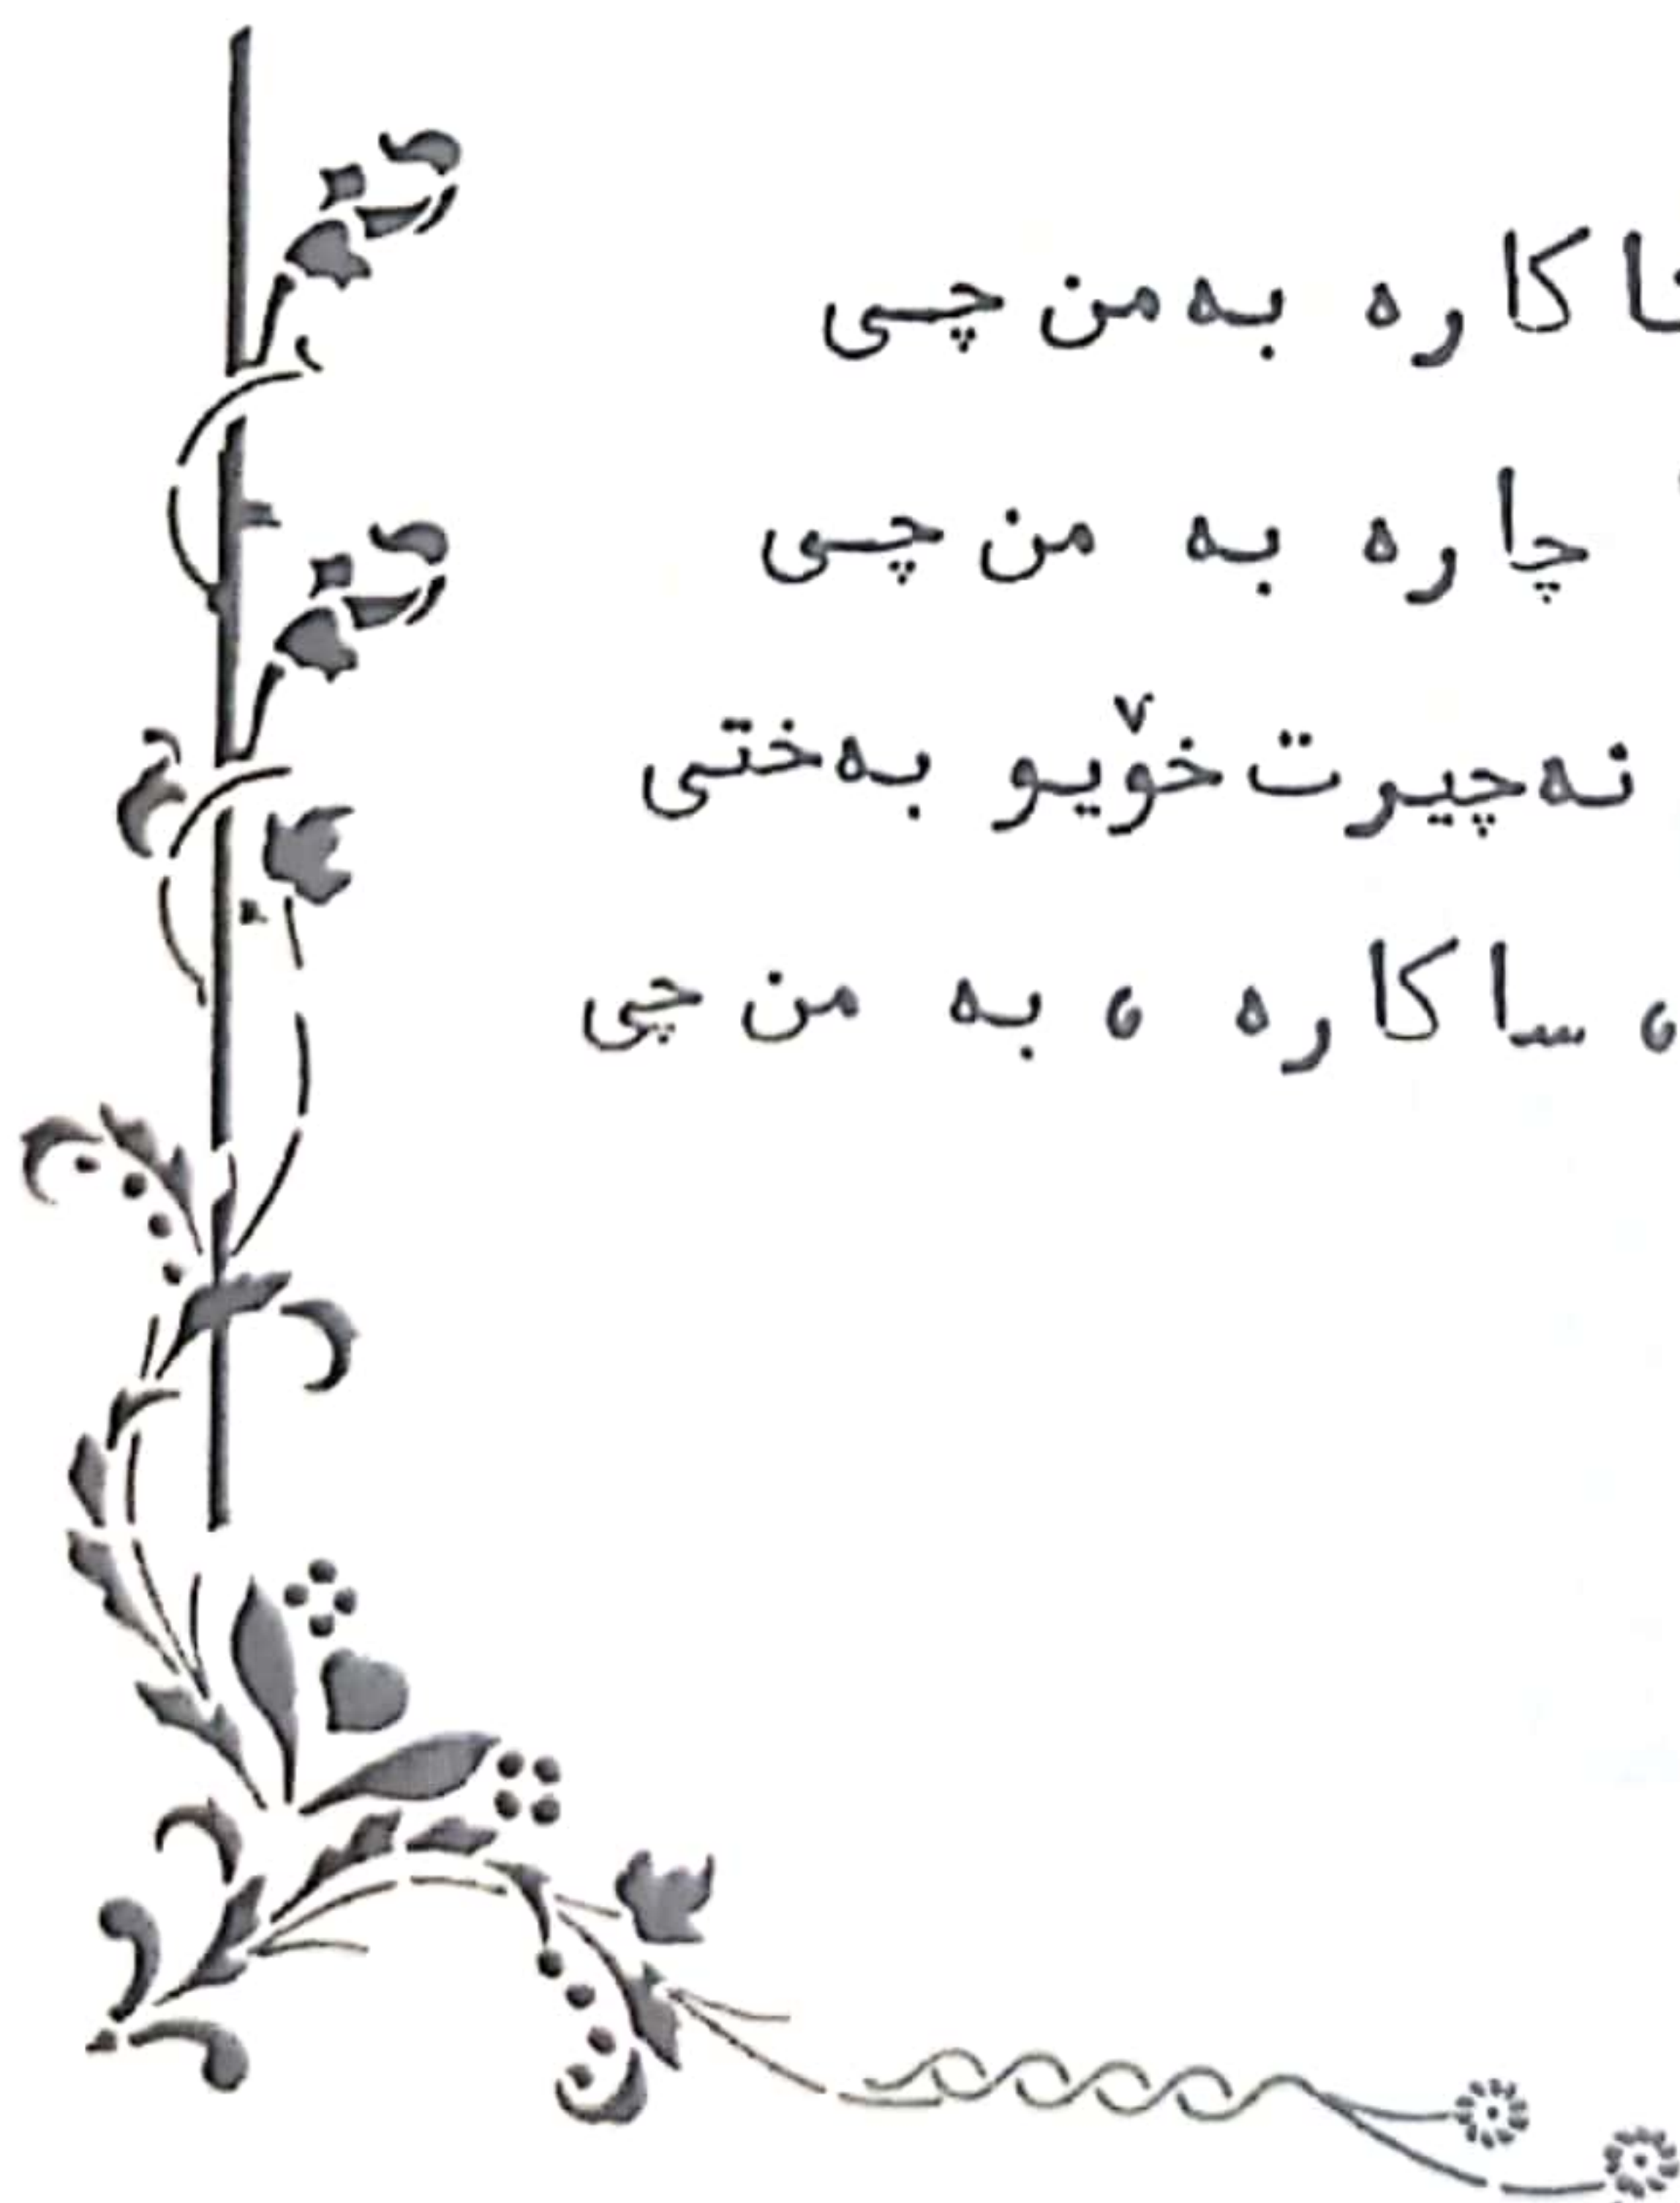 کاره به‌من چی
چاره به من چی
نه‌چیرت خۆیو به‌ختی
ساکاره ، به من چی